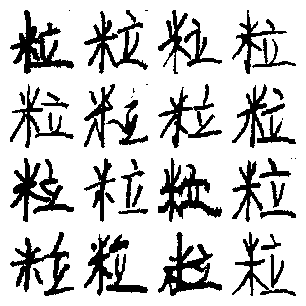 粒粒粒粒
粒粒粒粒
粒粒粒粒
粒粒粒粒